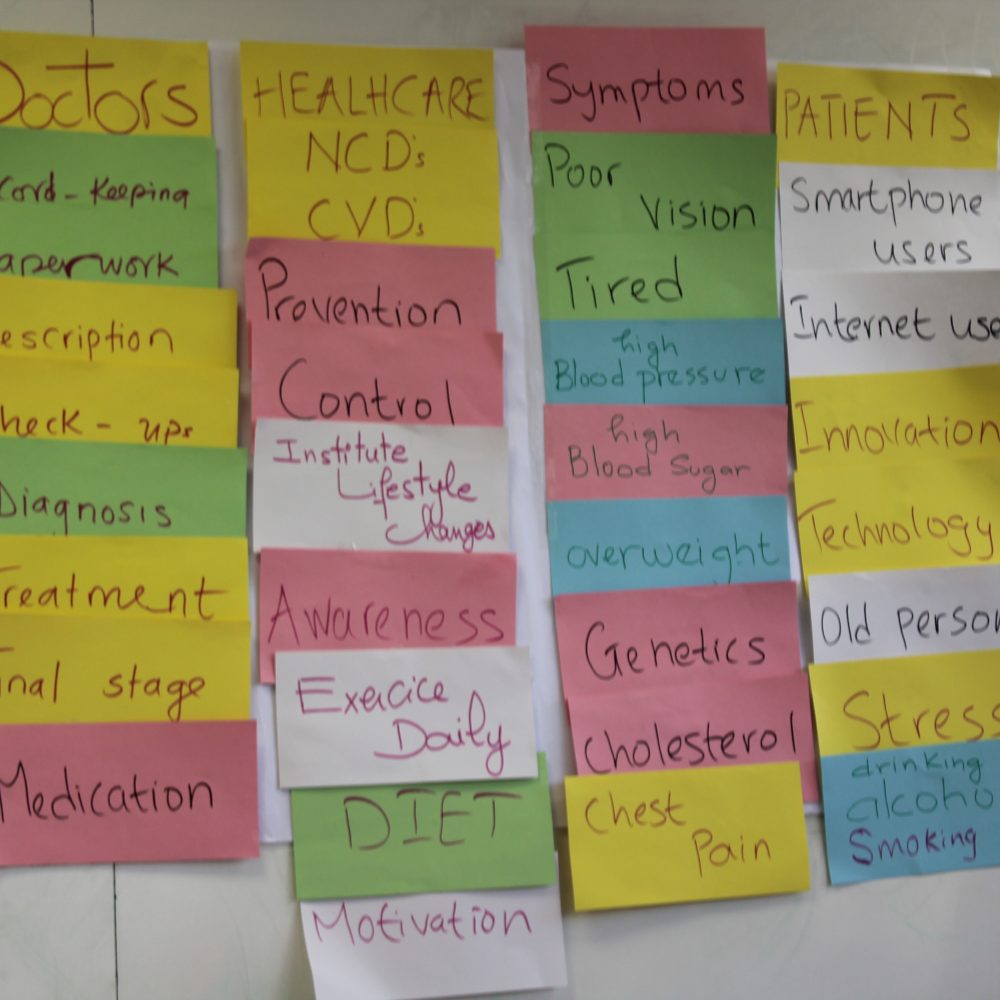 Doctors
cord - Keeping
aperwork
escription
heck - ups
Diagnosis
Treatment
inal stage
Medication
HEALHCARE
NCD's
CVD's
Provention
Control
Institute
Lifestyle
Changes
Awareness
Exercice
Daily
DIET
Motivation
Symptoms
Poor
Vision
Tired
high
Blood pressure
high
Blood Sugar
overweight
Genetics
Cholesterol
Chest
Pain
PATIENTS
Smartphone
users
Internet use
Innovation
Technology
Old person
Stress
drinking
alcoho
Smoking